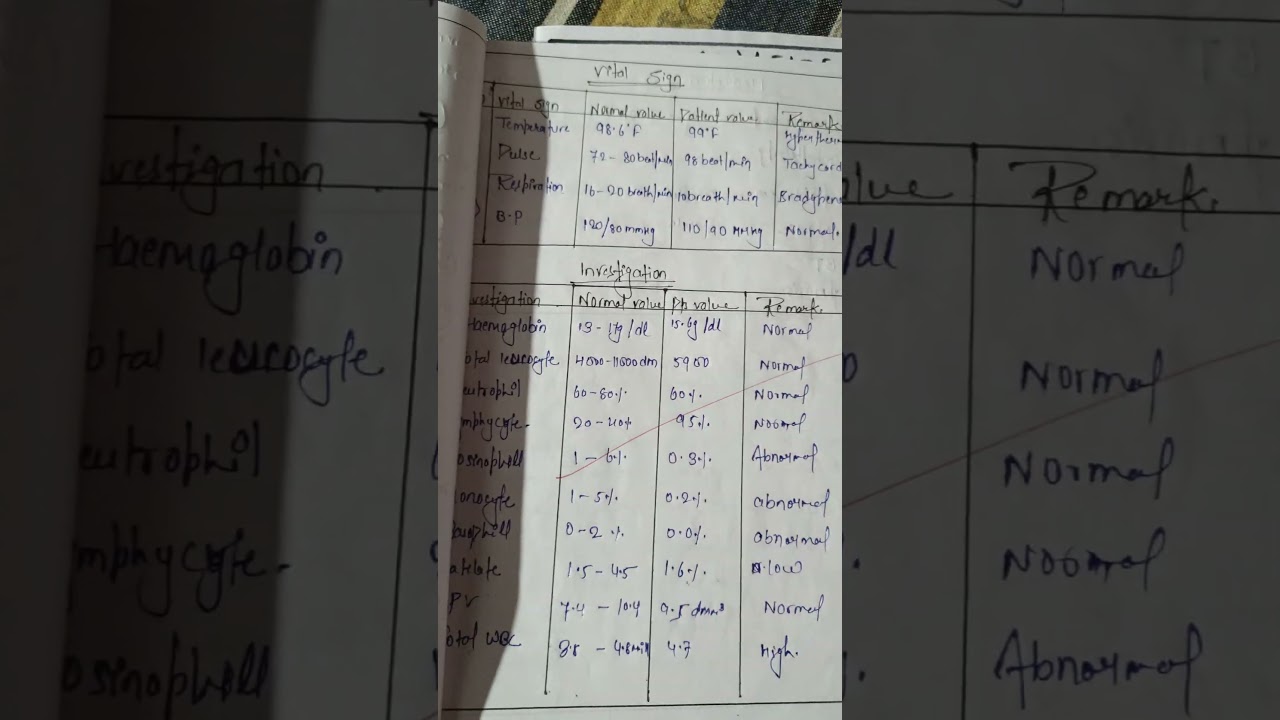 Vital Sign
Vital sign Normal value Patient value Remark
Temperature 98.6°F 99°F Hyperther
Pulse 72-80beat/min 98beat/min Tachycard
Respiration 16-20breath/min 10breath/min Bradypen
B.P 120/80mmHg 110/90 mmHg Normal.
Investigation
vestigation Normal value Pt value Remark.
Haemoglobin 13-17g/dl 15.6g/dl Normal
otal leucocyte 4000-11000 5950 Normal
eutrophil 60-80% 60% Normal
mphycyte- 20-40% Normal
osinophill 1-6% 0.3% Abnormal
onocyte 1-5% 0.2% abnormal
0-2% 0.0% abnormal
atelate 1.5-4.5 1.6% low
PV 7.4-10.4 9.5 Normal
otal 4.7 High.
vestigation
Haemoglobin
otal leucocyte
eutrophil
mphycyte-
osinophill
alue Remark.
/dl Normal
0 Normal
Normal
Normal
Abnormal